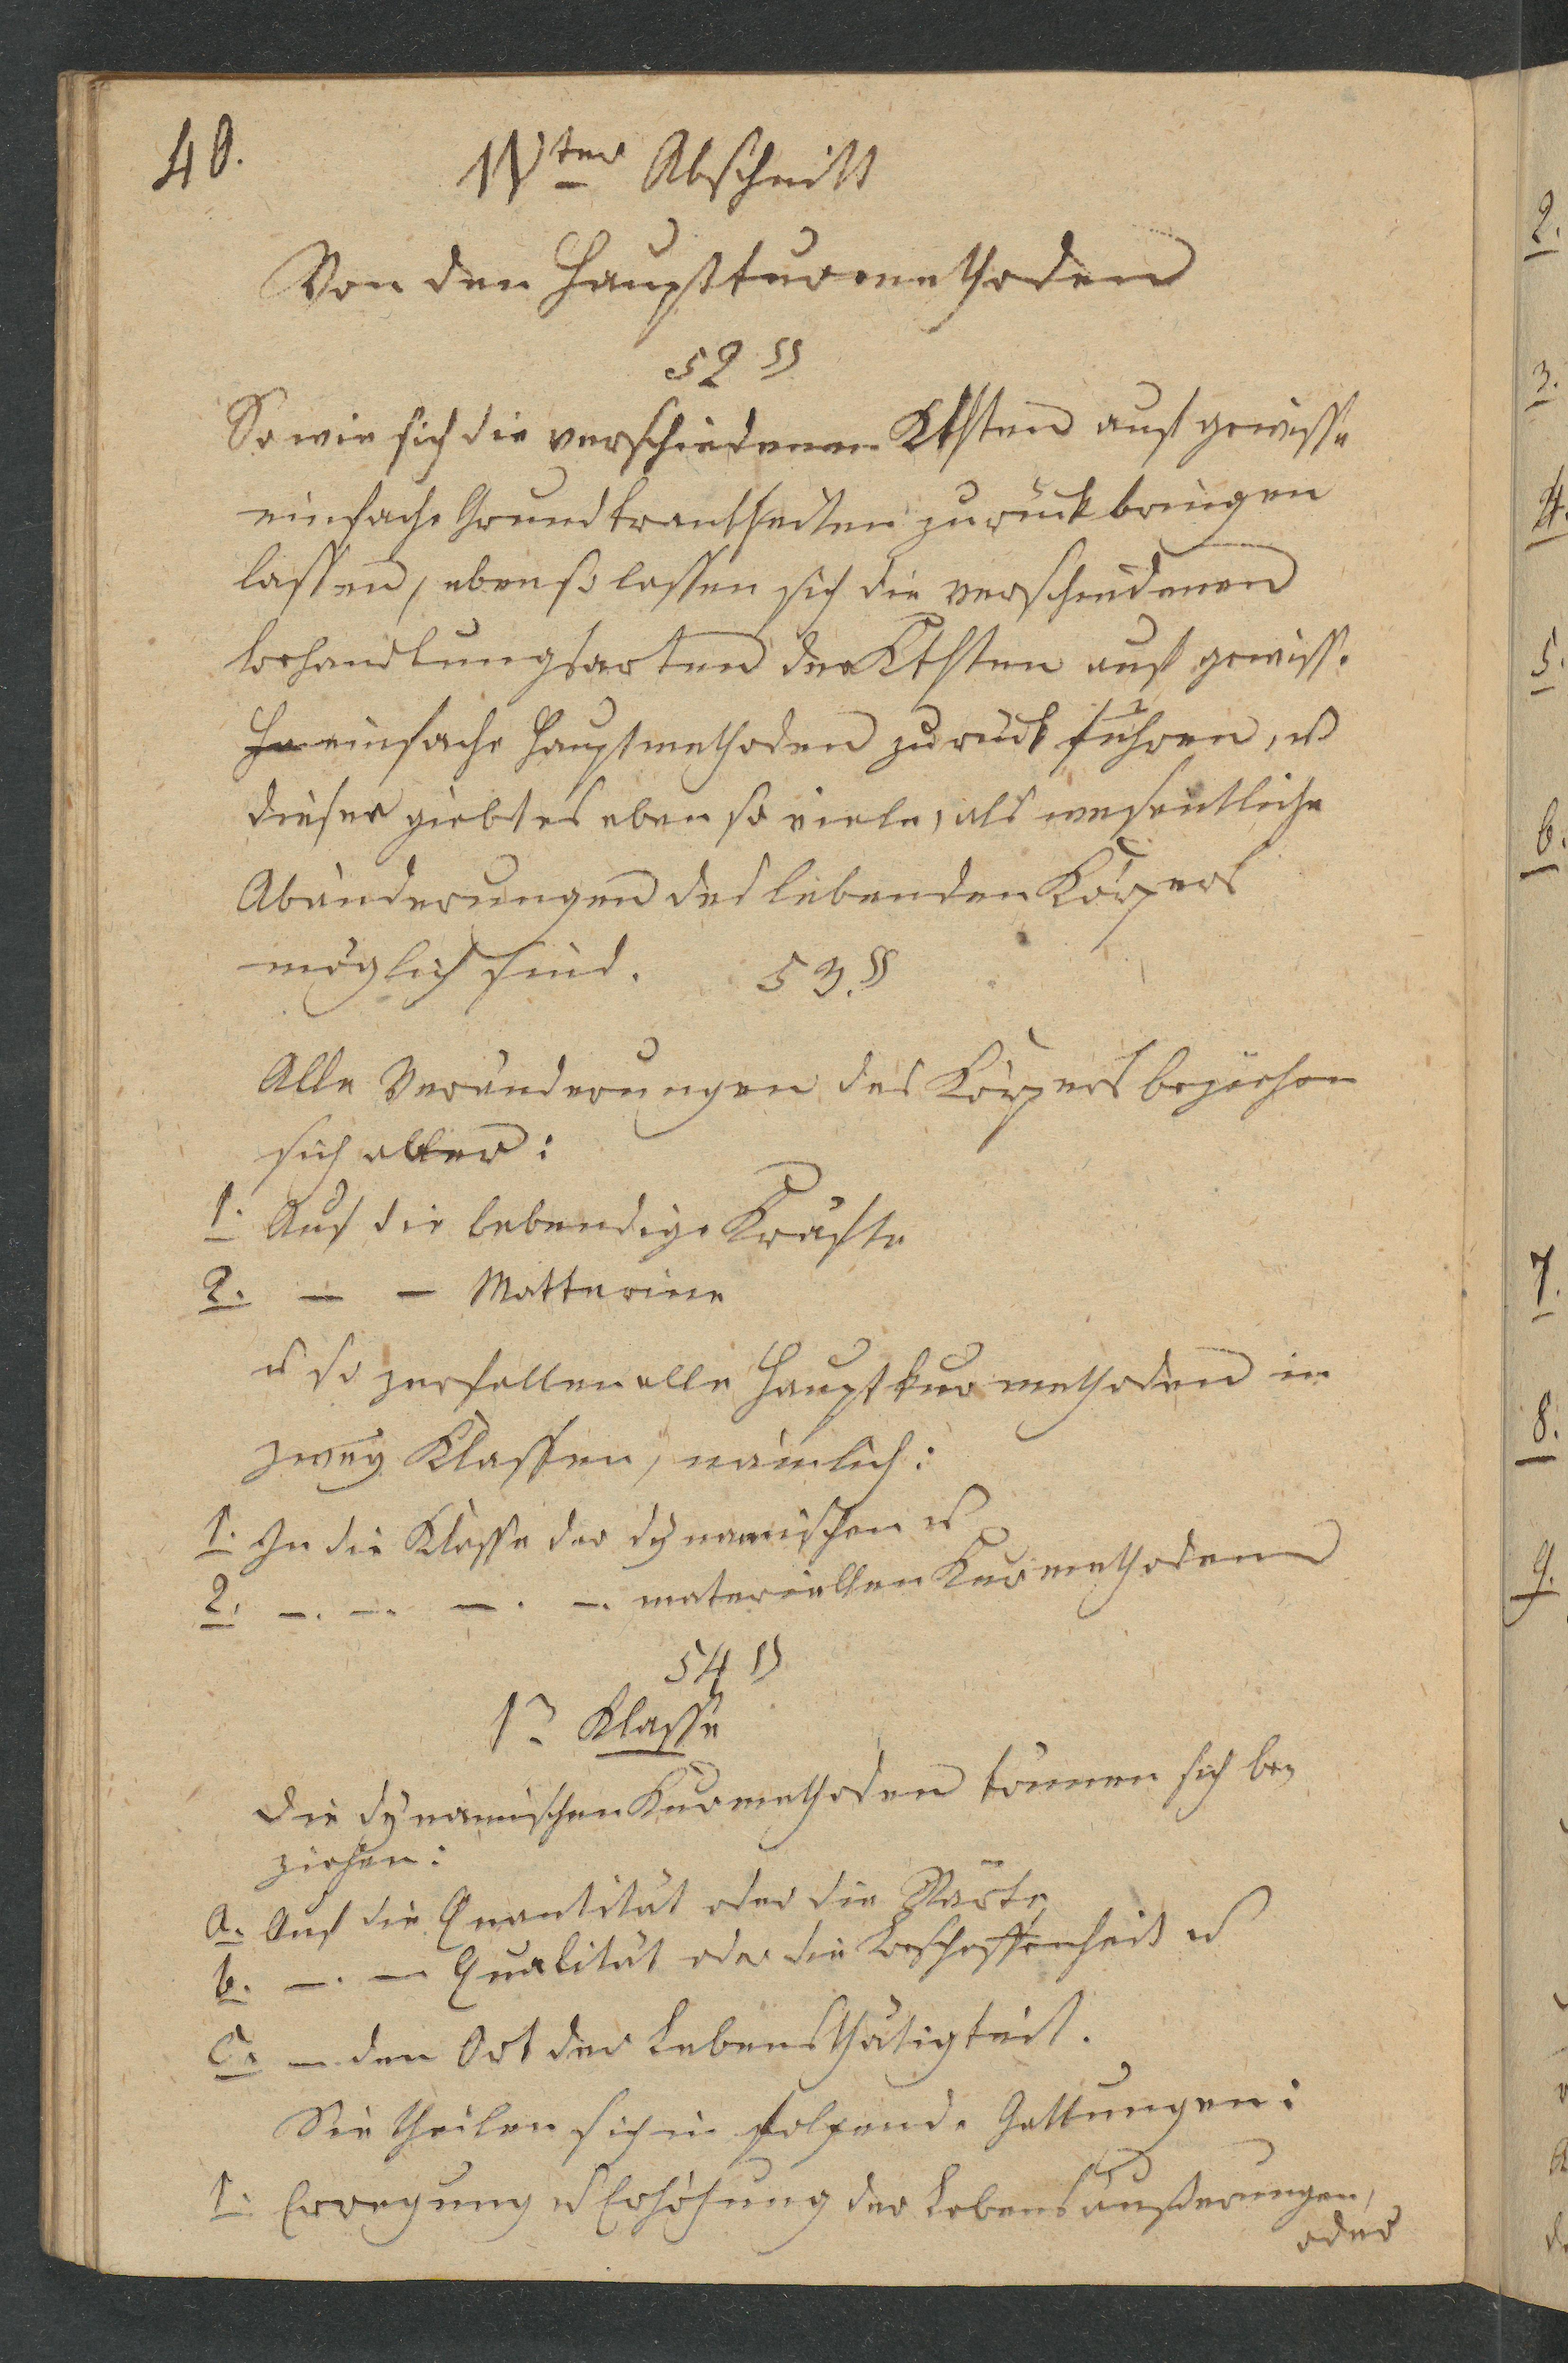 40.
IVter Abschnitt
Von den Hauptkurmethoden
52 §
So wie sich die verschiedenen Kkhten auf gewisse
einfache Grundkrankheiten zurückbringen
lassen, ebenso lassen sich die verschiedenen
behandlungsarten der Kkhten auf gewisse
einfache Hauptmethoden zurück führen, u
dieser giebt es eben so viele, als wesentliche
Abänderungen des lebenden Körpers
möglich sind. 53. §
Alle Veränderungen des Körpers beziehen
sich aber:
1. Auf die lebendige Kräfte
2. — — Matterine
u so zerfallen alle Hauptkurmethoden in
zwey Klassen, nämlich:
1. In die Klasse der dynamischen u
2. —. —. —. —. materiellen Kurmethoden
54 §
1. Klasse
Die dynamischen Kurmethoden können sich be=
ziehen:
a. Auf die Quantität oder die Stärke
b. —. — Qualität oder die Beschaffenheit u
c. — den Ort der Lebensthätigkeit.
Sie theilen sich in folgende Gattungen:
1. Erregung u Erhöhung der Lebensäußerungen,
oder
2.
3.
4.
5.
6.
7.
8.
9.